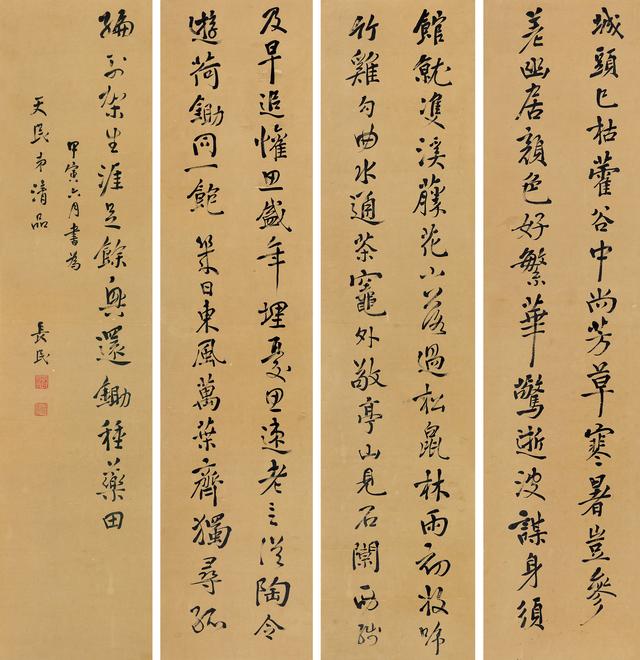 城頭已枯藿谷中尚芳草寒暑豈參
差幽居顏色好繁華驚逝波謀身須
館就雙溪藤花小落過松鼠林雨初收啼
竹雞勾曲水通茶竈外敬亭山見石闌西殘
及早追懽思盛年埋憂思速老言從陶令
遊荷鋤同一飽幾日東風萬葉齊獨尋孤
編列架生涯足餘興還鋤種藥田
甲寅六月書為
天民弟清品
長民